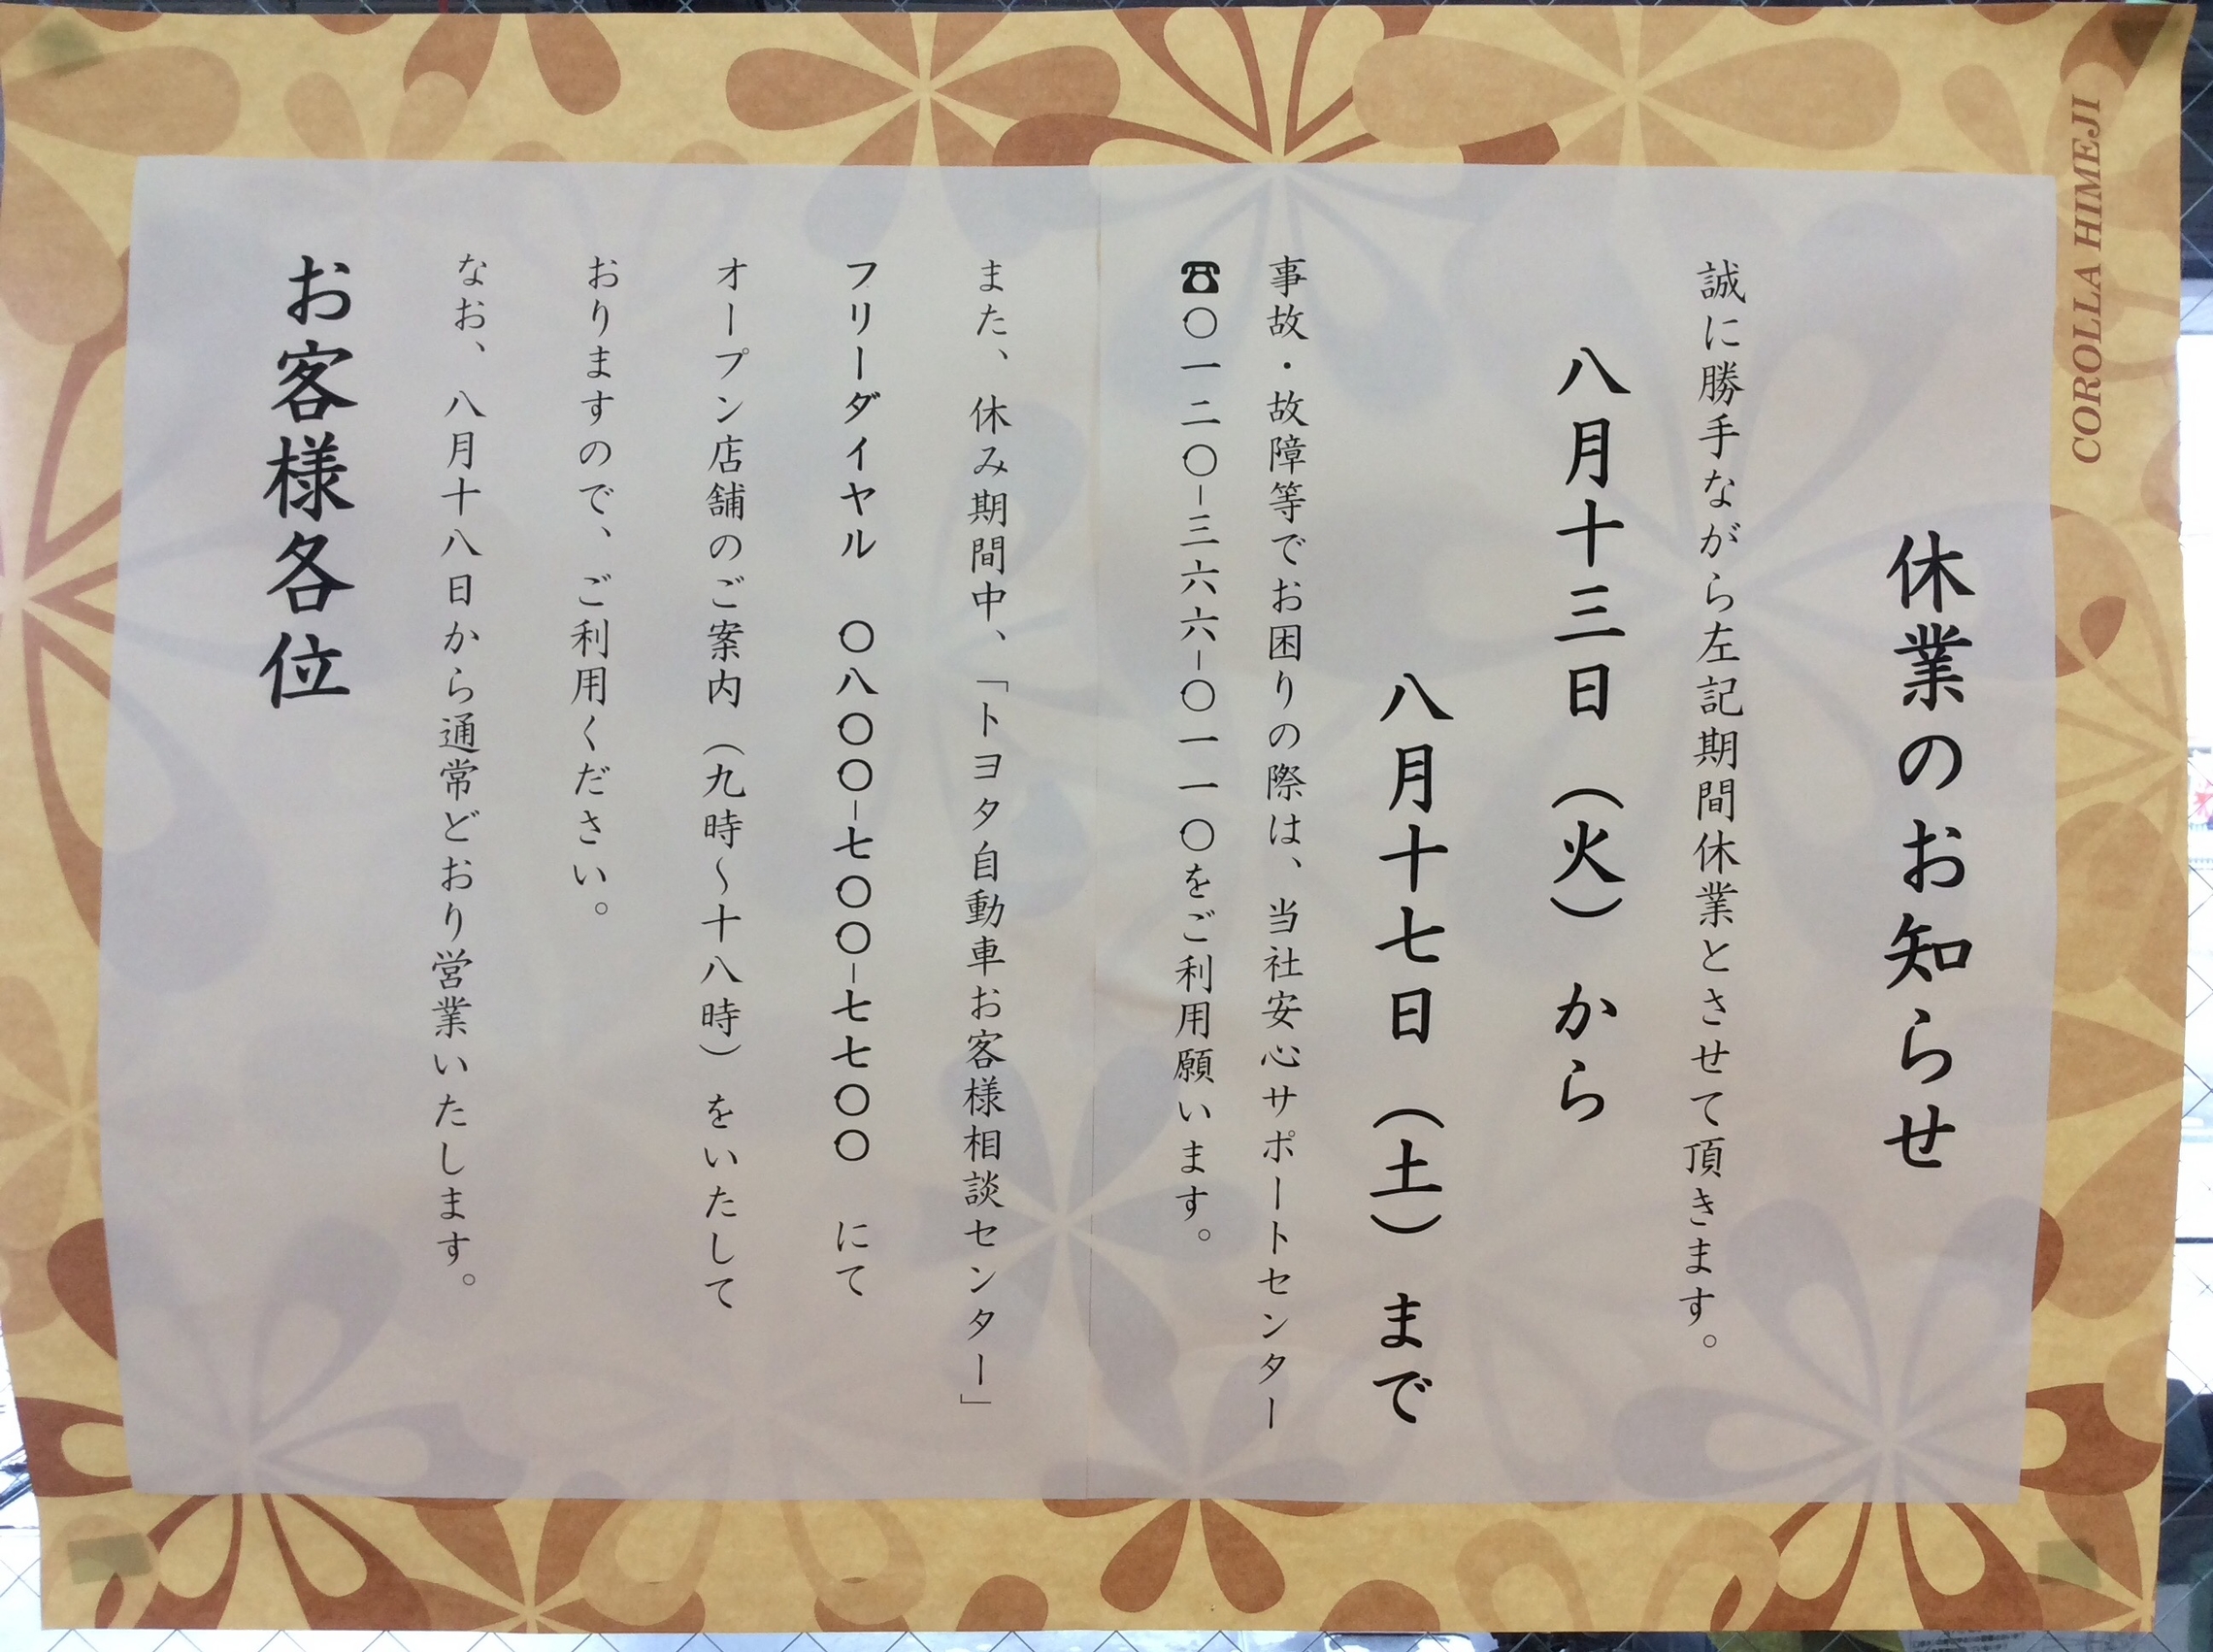 休業のお知らせ
誠に勝手ながら左記期間休業とさせて頂きます。
八月十三日（火）から
八月十七日（土）まで
事故・故障等でお困りの際は、当社安心サポートセンター
☎〇一二〇-三六六-〇一一〇をご利用願います。
また、休み期間中、「トヨタ自動車お客様相談センター」
フリーダイヤル　〇八〇〇-七〇〇-七七〇〇　にて
オープン店舗のご案内（九時～十八時）をいたして
おりますので、ご利用ください。
なお、八月十八日から通常どおり営業いたします。
お客様各位
COROLLA HIMEJI